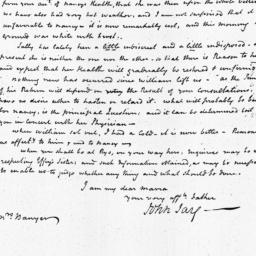 from your acct. of Nancys Health, that she was then upon the whole better
we have also had very bad weather, and I am not confident that it
unfavorable to nancy – it is now remarkably cool, and this morning
ground was white with frost.
Sally has lately been a little indiscreet and a little indisposed – at
present she is neither the one nor the other – so that there is Reason to hope
and expect that her Health will gradually be restored & confirmed
nothing new has occurred since William left us – as the Time
of his Return will depend on the Result of your Consultations, I
have no desire either to hasten or retard it. what will probably be best
for nancy, is the principal Question, and it can be determined only by
you in concert with her Physician –
when william set out, I had a cold – it is now better – Remember
us affectly. to him & to nancy –
when you shall be at Rye, on your way here, inquiries may be made
respecting Effys Sister, and such Information obtained, as may be necessary
to enable us to judge whether any thing and what should be done.
I am my dear Maria
Your very affte. Father
John Jay
Mrs Banyer